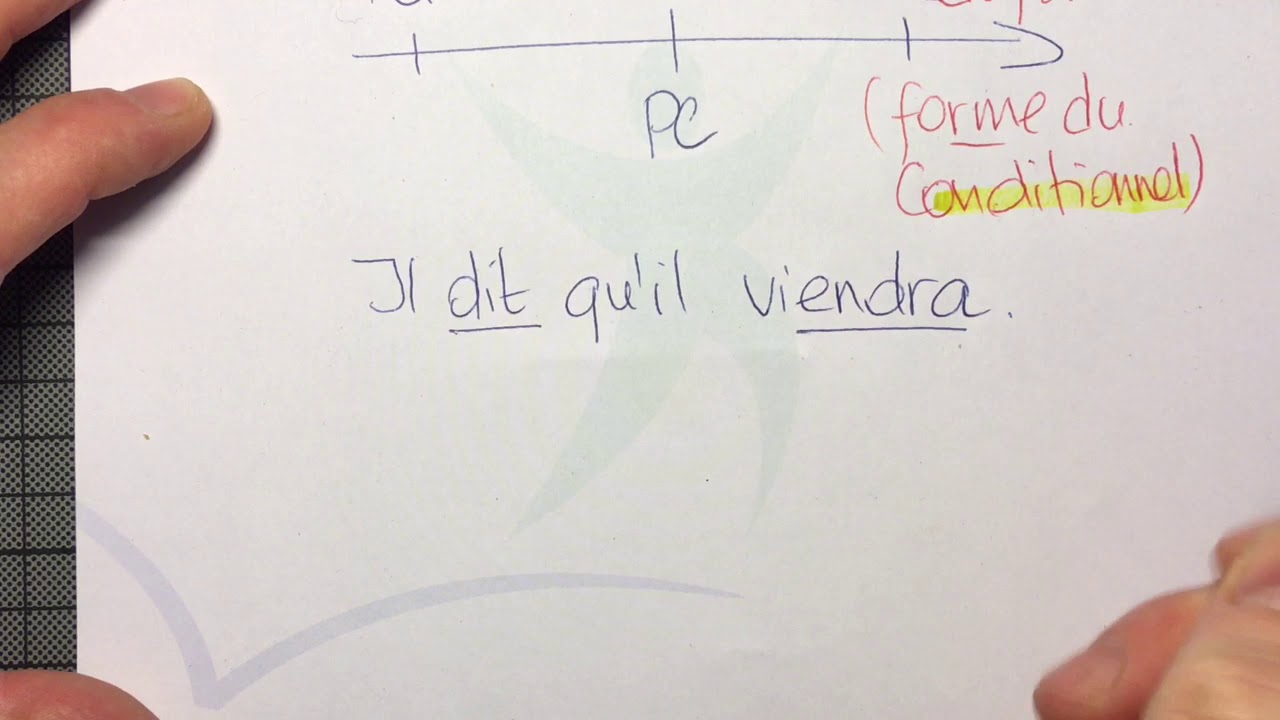 PC
(forme du
Conditionnel)
Il dit qu'il viendra.